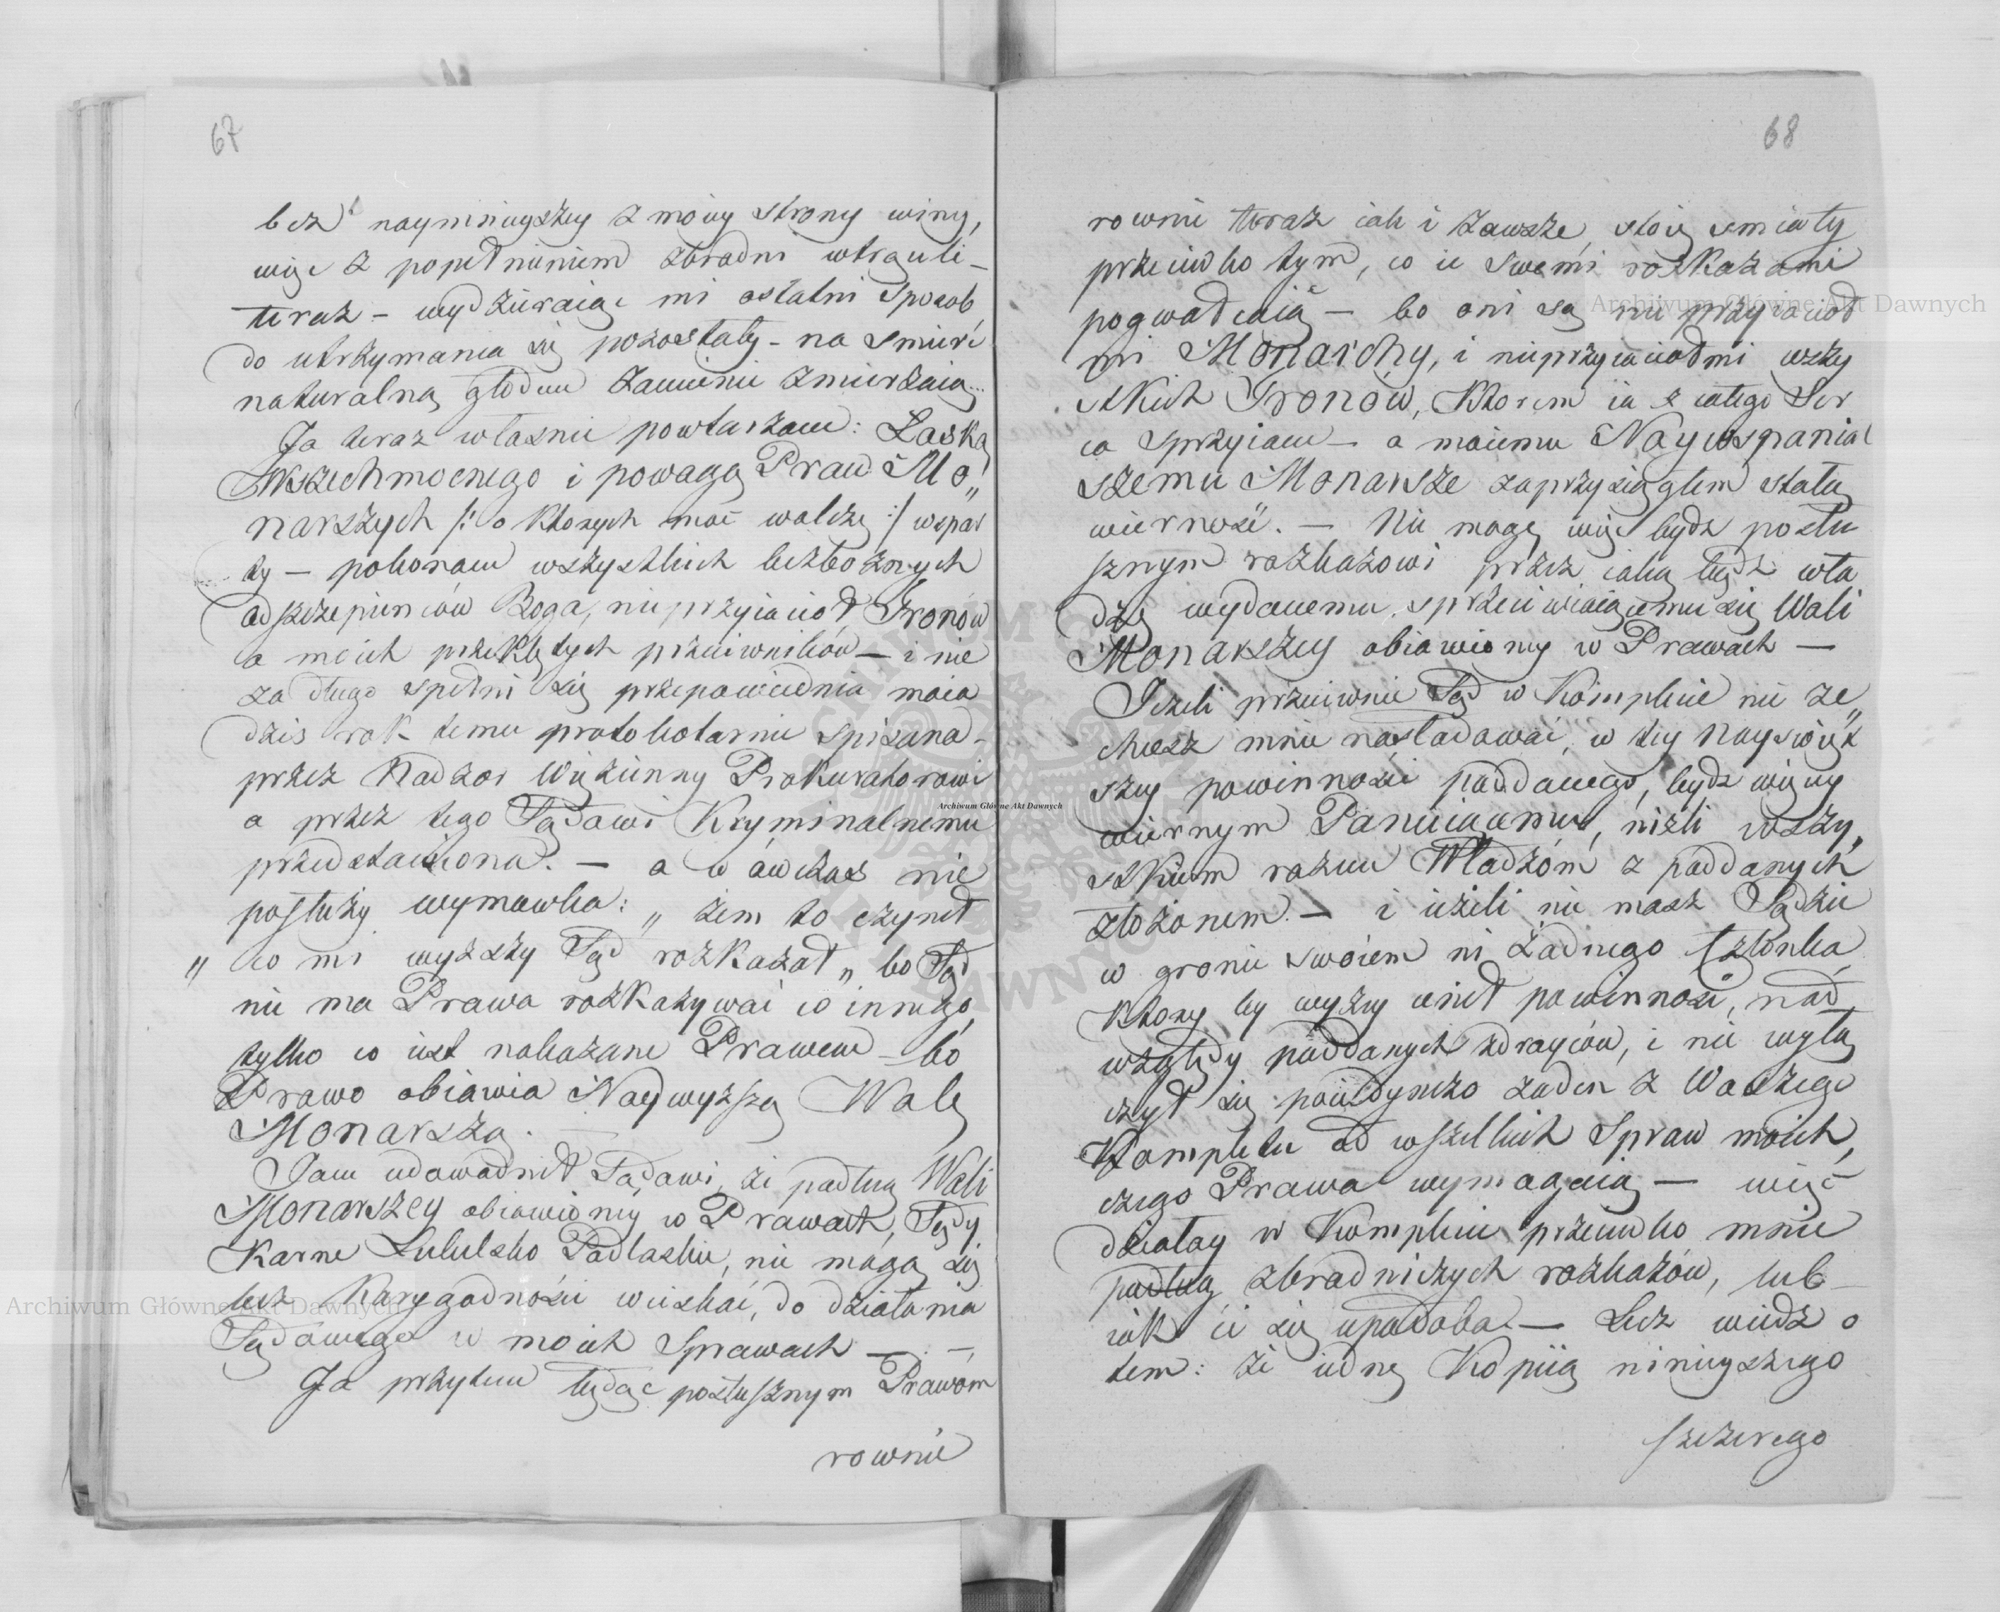 67
bez naymnieyszey z moiey strony winy,
więc z popełnieniem zbrodni wtrąceni
teraz – wydzieraiąc mi ostatni sposob
do utrzymania się pozostały – na smierć
naturalną głodem zamienić zmierzaią...
Ja teraz własnie powtarzam: Łaską
Wszechmocnego i powagą Praw Mo„
narszych /: o których moc walczę :/ wspar
ty – pokonam wszystkich bezbożnych
odszczepieńców Boga, nieprzyiaciół Tronów
a moich przeklętych przeciwników – i nie
za długo spełni się przepowiednia moia
dziś rok temu protokolarnie spisana –
przez Nadzor Więzienny Prokuratorowi
a przez tego Sądowi Kryminalnemu
przedstawiona. – a w ówczas nie
posłuży wymowka: „ żem to czynił
„ co mi wyższy Sąd rozkazał „ bo Sąd
nie ma Prawa rozkazywać co innego,
tylko co iest nakazane Prawem – bo
Prawo obiawia Naywyższą Wolę
Monarszą.
Jam udowodnił Sądowi, że podług Woli
Monarszey obiawioney w Prawach, Sądy
Karne Lubelsko Podlaskie, nie mogą się
bez Karygodności wciskać, do działania
Sądowego w moich Sprawach – . –
Ja przytem będąc posłusznym Prawom
rownie
68
rownie teraz iak i zawsze, stoię smiały
przeciwko tym, co ie swemi rozkazami
pogwałcaią – bo oni są nieprzyiaciół
mi Monarchy, i nieprzyiaciołmi wszy
stkich Tronów, Ktorem ia z całego Ser
ca sprzyiam – a moiemu Naywspanial
szemu Monarsze zaprzysiągłem stałą
wierność. – Nie mogę więc bydz posłu
sznym rozkazowi przez iaką bądz wła
dzę wydanemu, sprzeciwiaiącemu się Woli
Monarszey obiawioney w Prawach –
Jeżeli przeciwnie Sąd w Komplecie nie ze„
chcesz mnie nasladować, w tey Nayswięt
szey powinności poddanego, bydz więcey
wiernym Panuiącemu, niżli wszy„
stkiem razem Władzóm z poddanych
złożonem – i ieżeli nie masz Sądzie
w gronie swoiem ni żadnego Członka
Ktory by wyżey cenił powinność, nad
względy poddanych zdrayców, i nie wyłą
czył się poiedynczo żaden z Waszego
Kompletu od wszelkich Spraw moich,
czego Prawa wymagaią – więc
działay w Komplecie przeciwko mnie
podług zbrodniczych rozkazów, lub –
iak ci się upodoba – Lecz wiedz o
tem: że iedną Kopiią ninieyszego
szczerego
Archiwum Główne Akt Dawnych
Archiwum Główne Akt Dawnych
Archiwum Główne Akt Dawnych